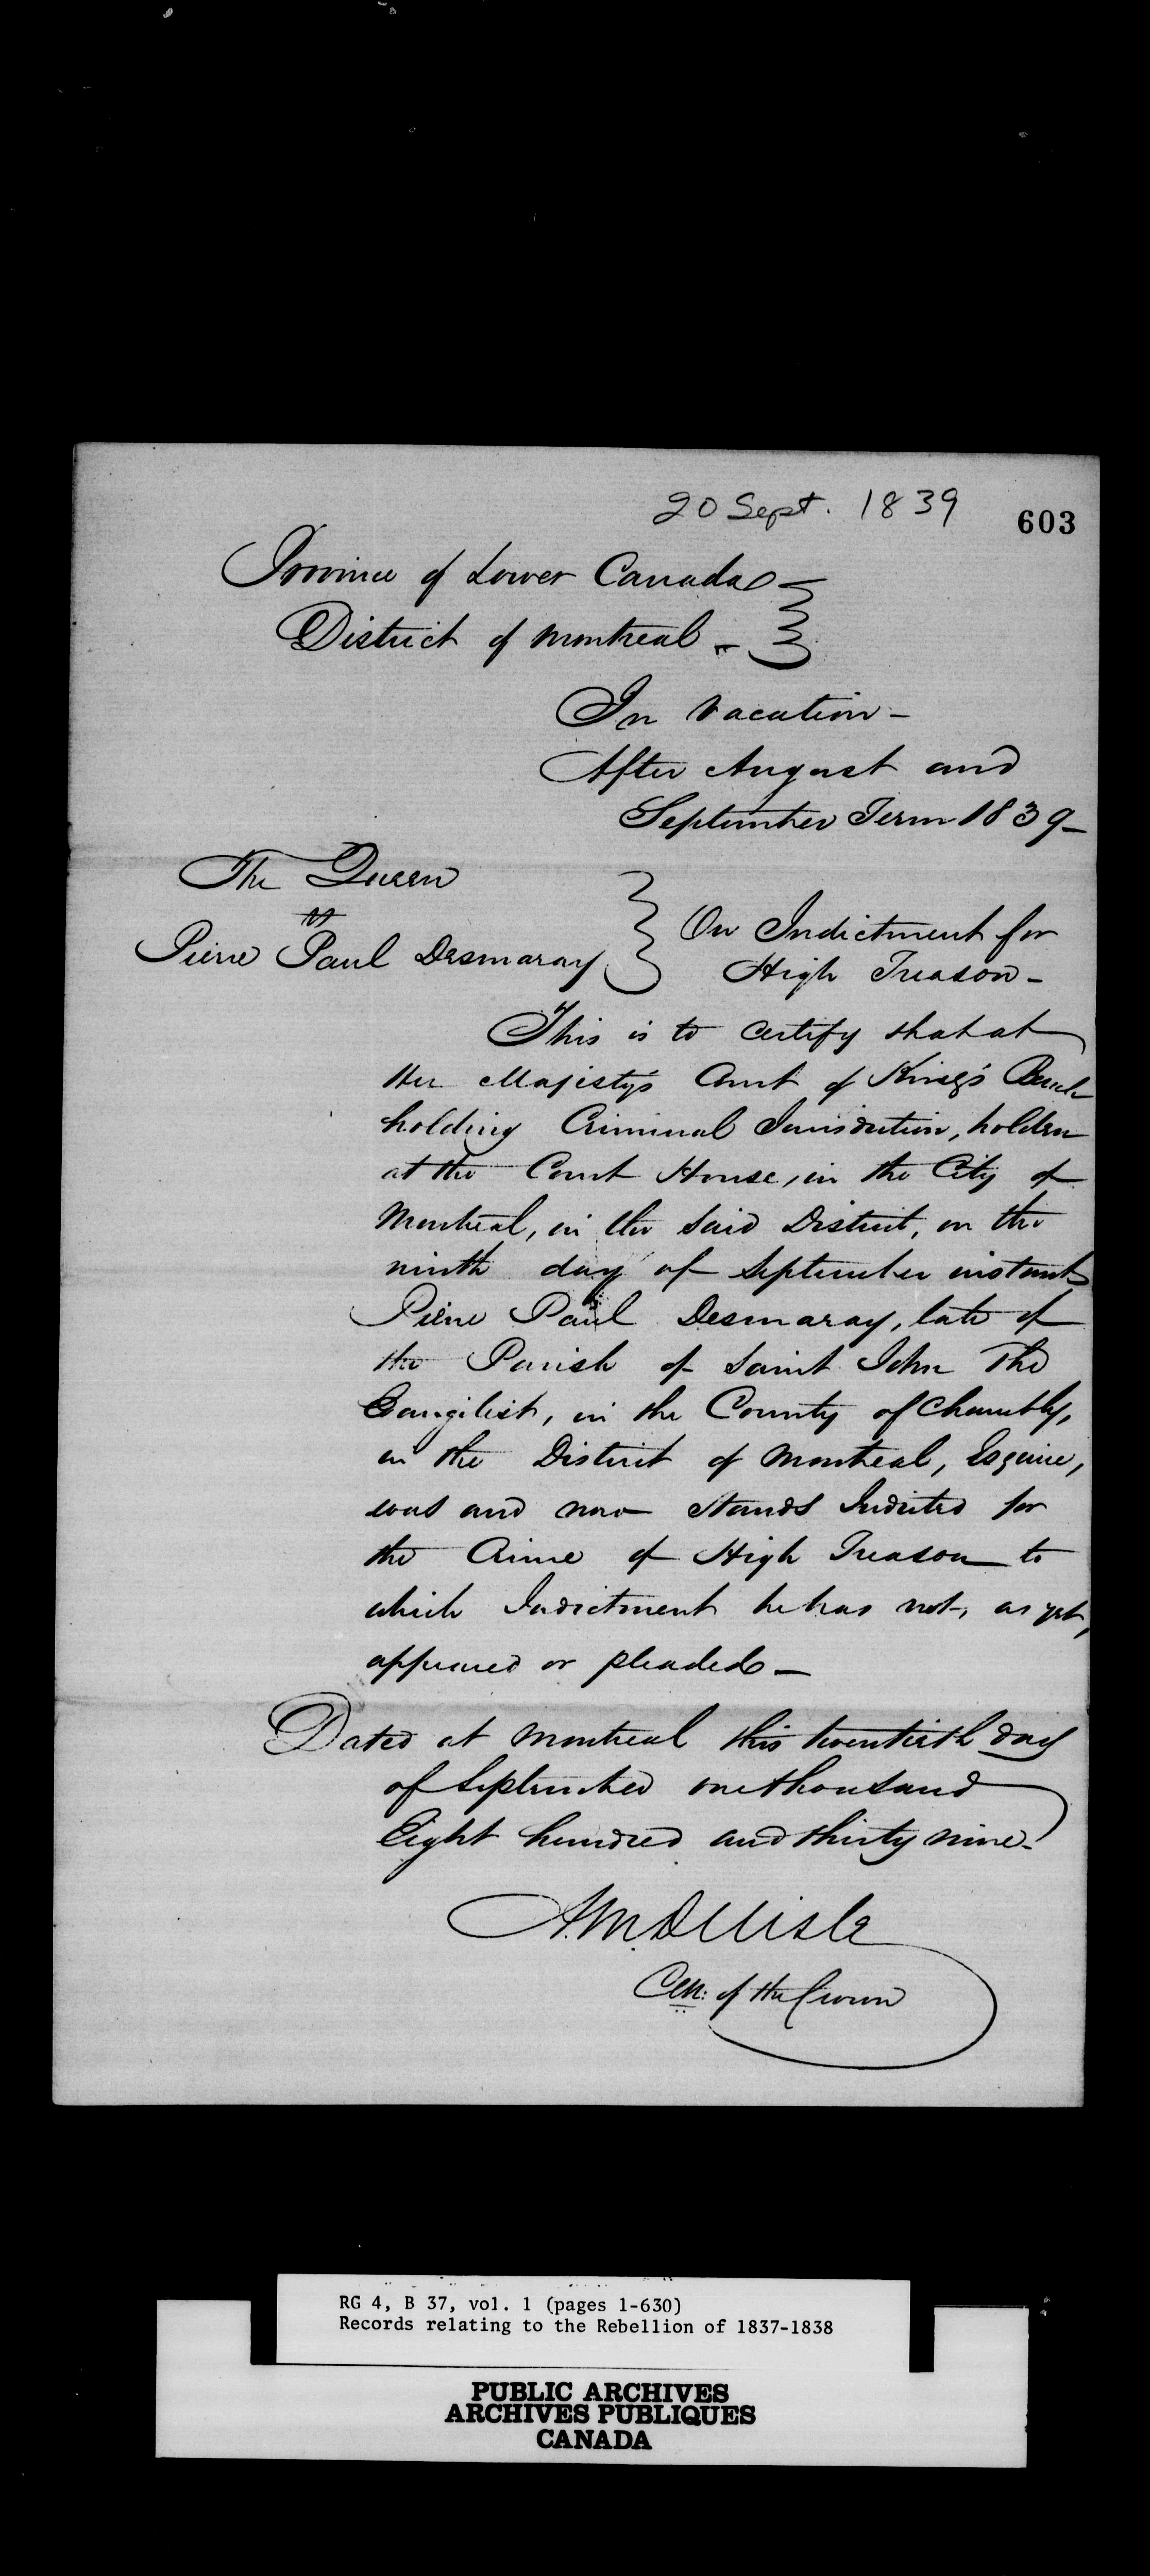 20 Sept. 1839
603
Province of Lower Canada
District of Montreal -
In Vacation -
After August and
September Term 1839 -
The Queen
vs
Pierre Paul Desmaray
On Indictment for
High Treason -
This is to certify that at
Her Majesty's Court of King's Bench
holding Criminal Jurisdiction, holden
at the Court House, in the City of
Montreal, in the said District, on the
ninth day of September instant
Pierre Paul Desmaray, late of
the Parish of Saint John The
Evangilist, in the County of Chambly,
in the District of Montreal, Esquire,
was and now stands Indicted for
the Crime of High Treason to
which Indictment he has not, as yet,
appeared or pleaded -
Dated at Montreal this twentieth day
of September one thousand
Eight hundred and thirty nine -
A.M. Delisle
Clk: of the Crown
RG 4, B 37, vol. 1 (pages 1-630)
Records relating to the Rebellion of 1837-1838
PUBLIC ARCHIVES
ARCHIVES PUBLIQUES
CANADA